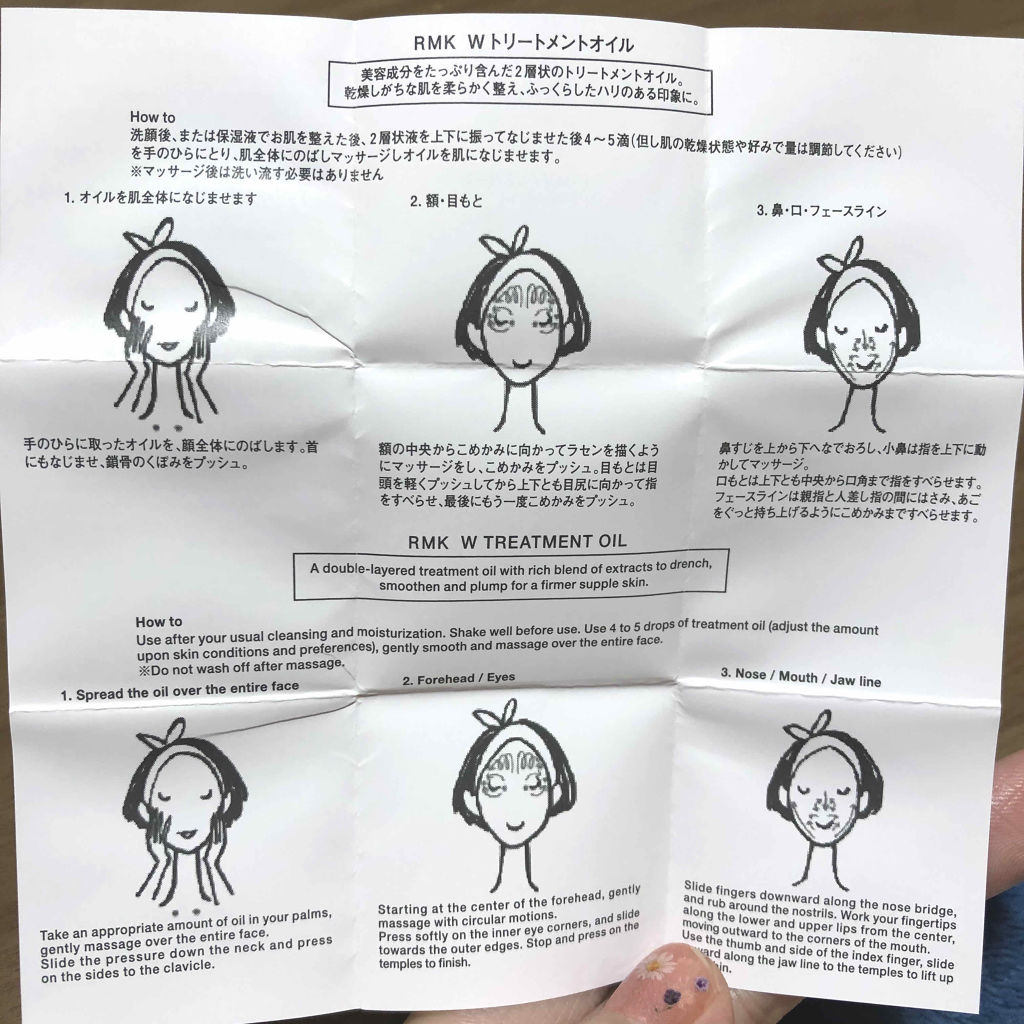 RMK W トリートメントオイル
美容成分をたっぷり含んだ2層状のトリートメントオイル。
乾燥しがちな肌を柔らかく整え、ふっくらしたハリのある印象に。
How to
洗顔後、または保湿液でお肌を整えた後、2層状液を上下に振ってなじませた後4～5滴(但し肌の乾燥状態や好みで量は調節してください)
を手のひらにとり、肌全体にのばしマッサージしオイルを肌になじませます。
※マッサージ後は洗い流す必要はありません
1. オイルを肌全体になじませます
2. 額・目もと
3. 鼻・口・フェースライン
手のひらに取ったオイルを、顔全体にのばします。首
にもなじませ、鎖骨のくぼみをプッシュ。
額の中央からこめかみに向かってラセンを描くよう
にマッサージをし、こめかみをプッシュ。目もとは目
頭を軽くプッシュしてから上下とも目尻に向かって指
をすべらせ、最後にもう一度こめかみをプッシュ。
鼻すじを上から下へなでおろし、小鼻は指を上下に動
かしてマッサージ。
口もとは上下とも中央から口角まで指をすべらせます。
フェースラインは親指と人差し指の間にはさみ、あご
をぐっと持ち上げるようにこめかみまですべらせます。
RMK W TREATMENT OIL
A double-layered treatment oil with rich blend of extracts to drench,
smoothen and plump for a firmer supple skin.
How to
Use after your usual cleansing and moisturization. Shake well before use. Use 4 to 5 drops of treatment oil (adjust the amount
upon skin conditions and preferences), gently smooth and massage over the entire face.
※Do not wash off after massage.
1. Spread the oil over the entire face
2. Forehead / Eyes
3. Nose / Mouth / Jaw line
Take an appropriate amount of oil in your palms,
gently massage over the entire face.
Slide the pressure down the neck and press
on the sides to the clavicle.
Starting at the center of the forehead, gently
massage with circular motions.
Press softly on the inner eye corners, and slide
towards the outer edges. Stop and press on the
temples to finish.
Slide fingers downward along the nose bridge,
and rub around the nostrils. Work your fingertips
along the lower and upper lips from the center,
moving outward to the corners of the mouth.
Use the thumb and side of the index finger, slide
along the jaw line to the temples to lift up